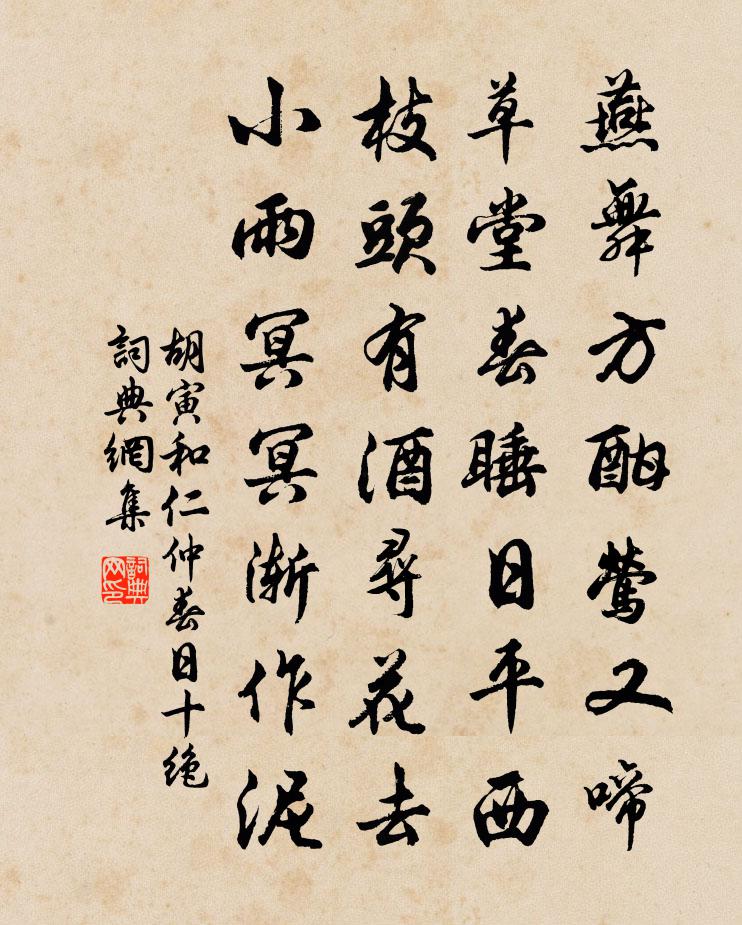 燕舞方酣鶯又啼
草堂春睡日平西
枝頭有酒尋花去
小雨冥冥漸作泥
胡寅和仁仲春日十绝
詞典網集
詞典
网印